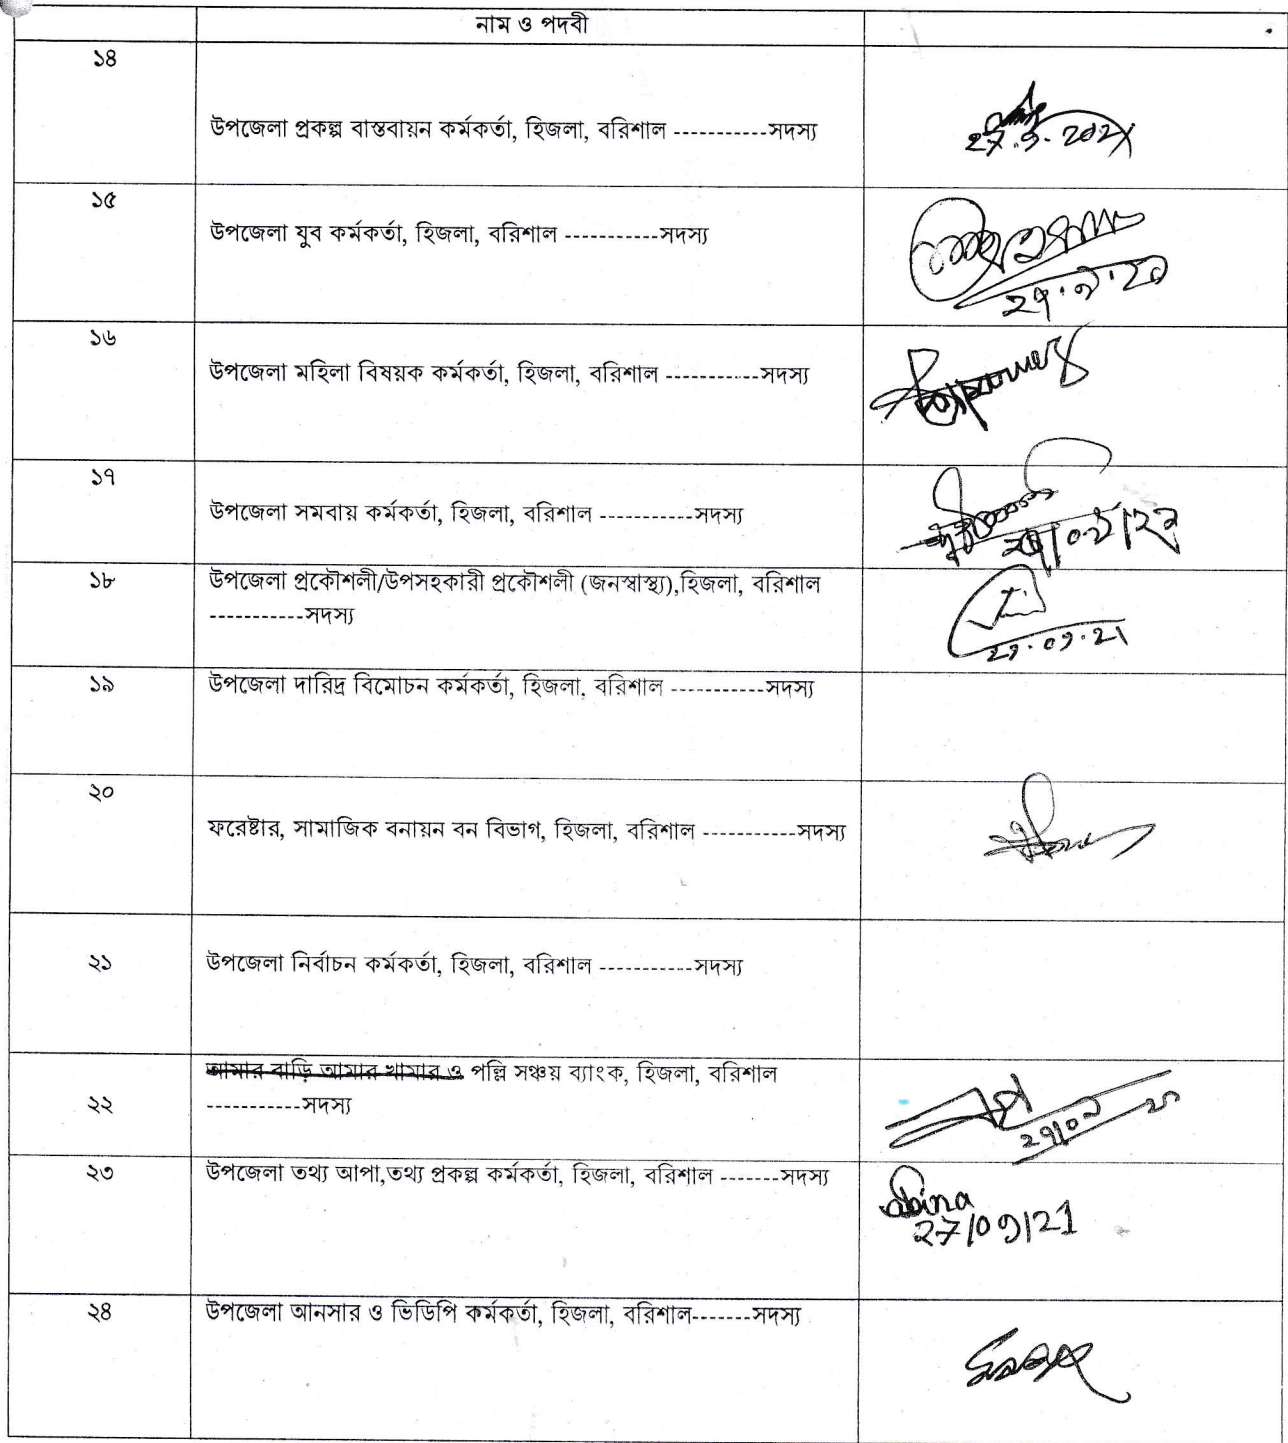 নাম ও পদবী
১৪
উপজেলা প্রকল্প বাস্তবায়ন কর্মকর্তা, হিজলা, বরিশাল -----------সদস্য
২৭.৯.২০২১
১৫
উপজেলা যুব কর্মকর্তা, হিজলা, বরিশাল -----------সদস্য
১৬
উপজেলা মহিলা বিষয়ক কর্মকর্তা, হিজলা, বরিশাল -----------সদস্য
১৭
উপজেলা সমবায় কর্মকর্তা, হিজলা, বরিশাল -----------সদস্য
১৮
উপজেলা প্রকৌশলী/উপসহকারী প্রকৌশলী (জনস্বাস্থ্য),হিজলা, বরিশাল
-----------সদস্য
27.09.21
১৯
উপজেলা দারিদ্র বিমোচন কর্মকর্তা, হিজলা, বরিশাল -----------সদস্য
২০
ফরেষ্টার, সামাজিক বনায়ন বন বিভাগ, হিজলা, বরিশাল -----------সদস্য
২১
উপজেলা নির্বাচন কর্মকর্তা, হিজলা, বরিশাল -----------সদস্য
আমার বাড়ি আমার খামার ও পল্লি সঞ্চয় ব্যাংক, হিজলা, বরিশাল
২২
-----------সদস্য
২৩
উপজেলা তথ্য আপা,তথ্য প্রকল্প কর্মকর্তা, হিজলা, বরিশাল -------সদস্য
27/09/21
২৪
উপজেলা আনসার ও ভিডিপি কর্মকর্তা, হিজলা, বরিশাল-------সদস্য